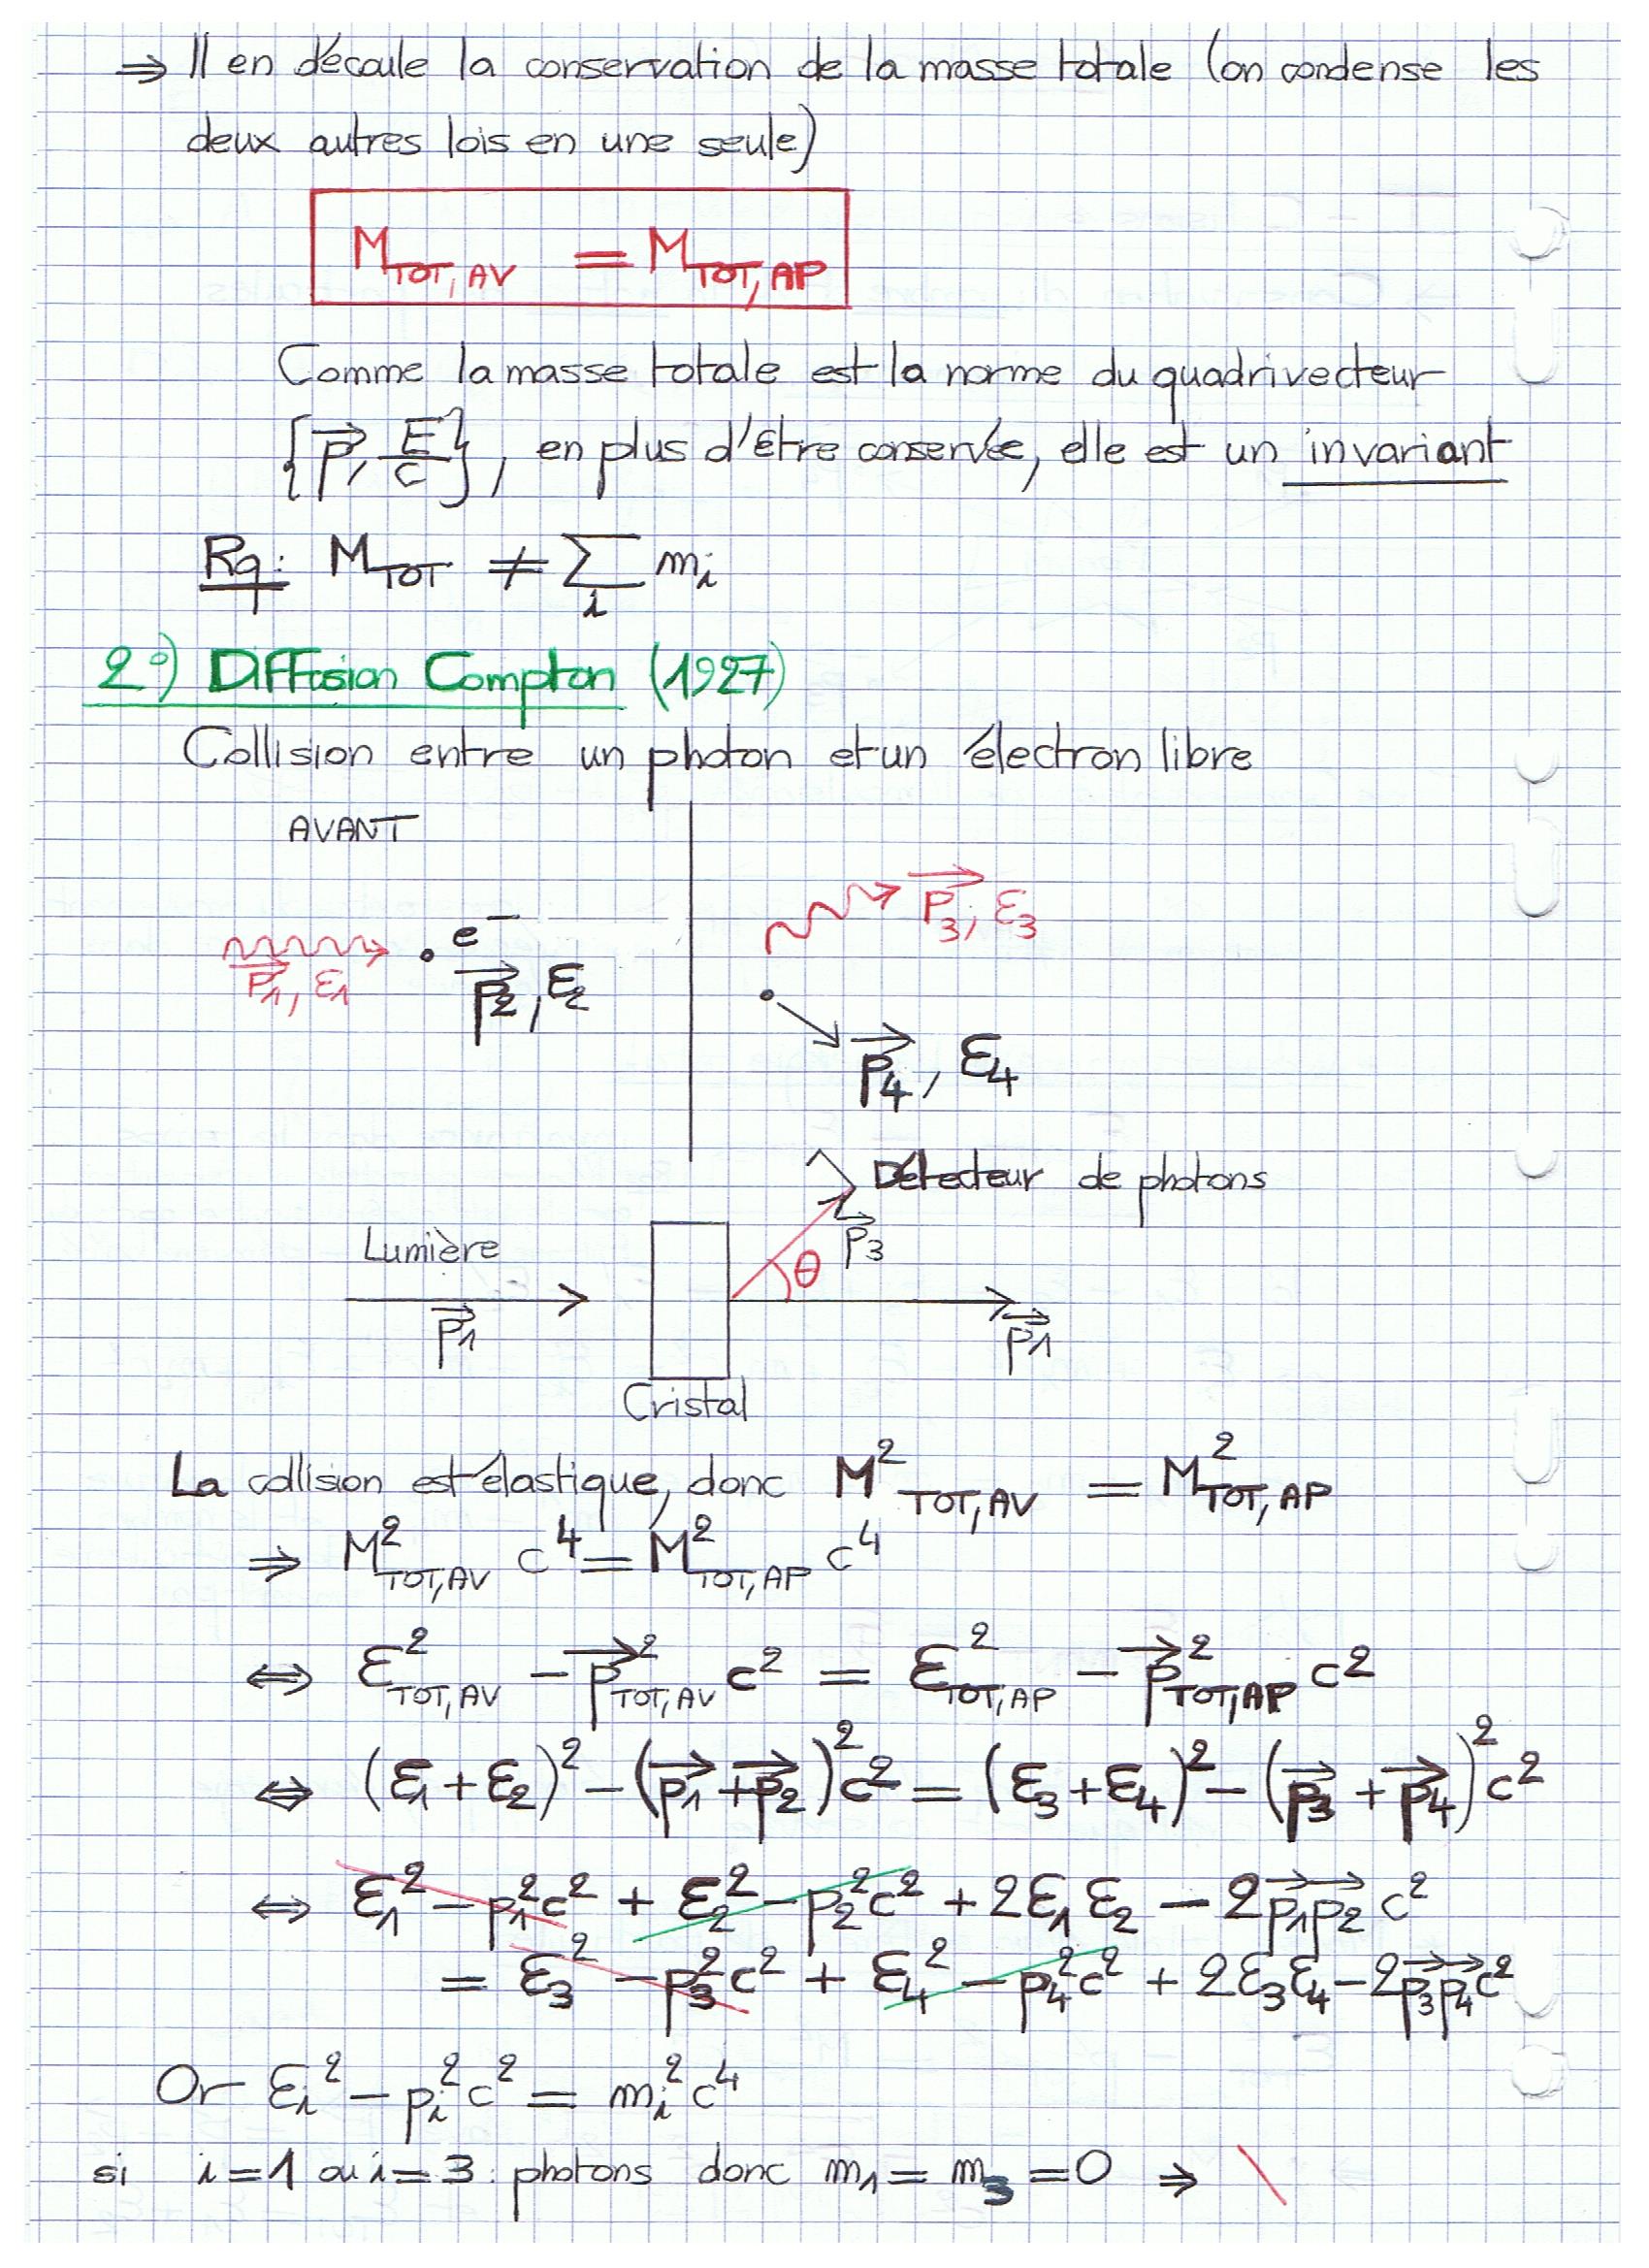 ⇒ Il en découle la conservation de la masse totale (on condense les
deux autres lois en une seule)
M_TOT,AV = M_TOT,AP
Comme la masse totale est la norme du quadrivecteur
{p⃗, E/c}, en plus d'être conservée, elle est un invariant
Rq: M_TOT ≠ ∑_i m_i
2°) Diffusion Compton (1927)
Collision entre un photon et un électron libre
AVANT
p⃗3, ε3
e⁻
p⃗1, ε1
p⃗2, ε2
p⃗4, ε4
Détecteur de photons
p⃗3
Lumière
θ
p⃗1
p⃗1
Cristal
La collision est élastique, donc M²_TOT,AV = M²_TOT,AP
⇒ M²_TOT,AV c⁴ = M²_TOT,AP c⁴
⇔ ε²_TOT,AV - p⃗²_TOT,AV c² = ε²_TOT,AP - p⃗²_TOT,AP c²
⇔ (ε1 + ε2)² - (p⃗1 + p⃗2)² c² = (ε3 + ε4)² - (p⃗3 + p⃗4)² c²
⇔ ε1² - p1²c² + ε2² - p2²c² + 2ε1ε2 - 2p⃗1p⃗2 c²
= ε3² - p3²c² + ε4² - p4²c² + 2ε3ε4 - 2p⃗3p⃗4c²
Or εi² - pi²c² = mi²c⁴
si i=1 ou i=3 : photons donc m1 = m3 = 0 ⇒ \